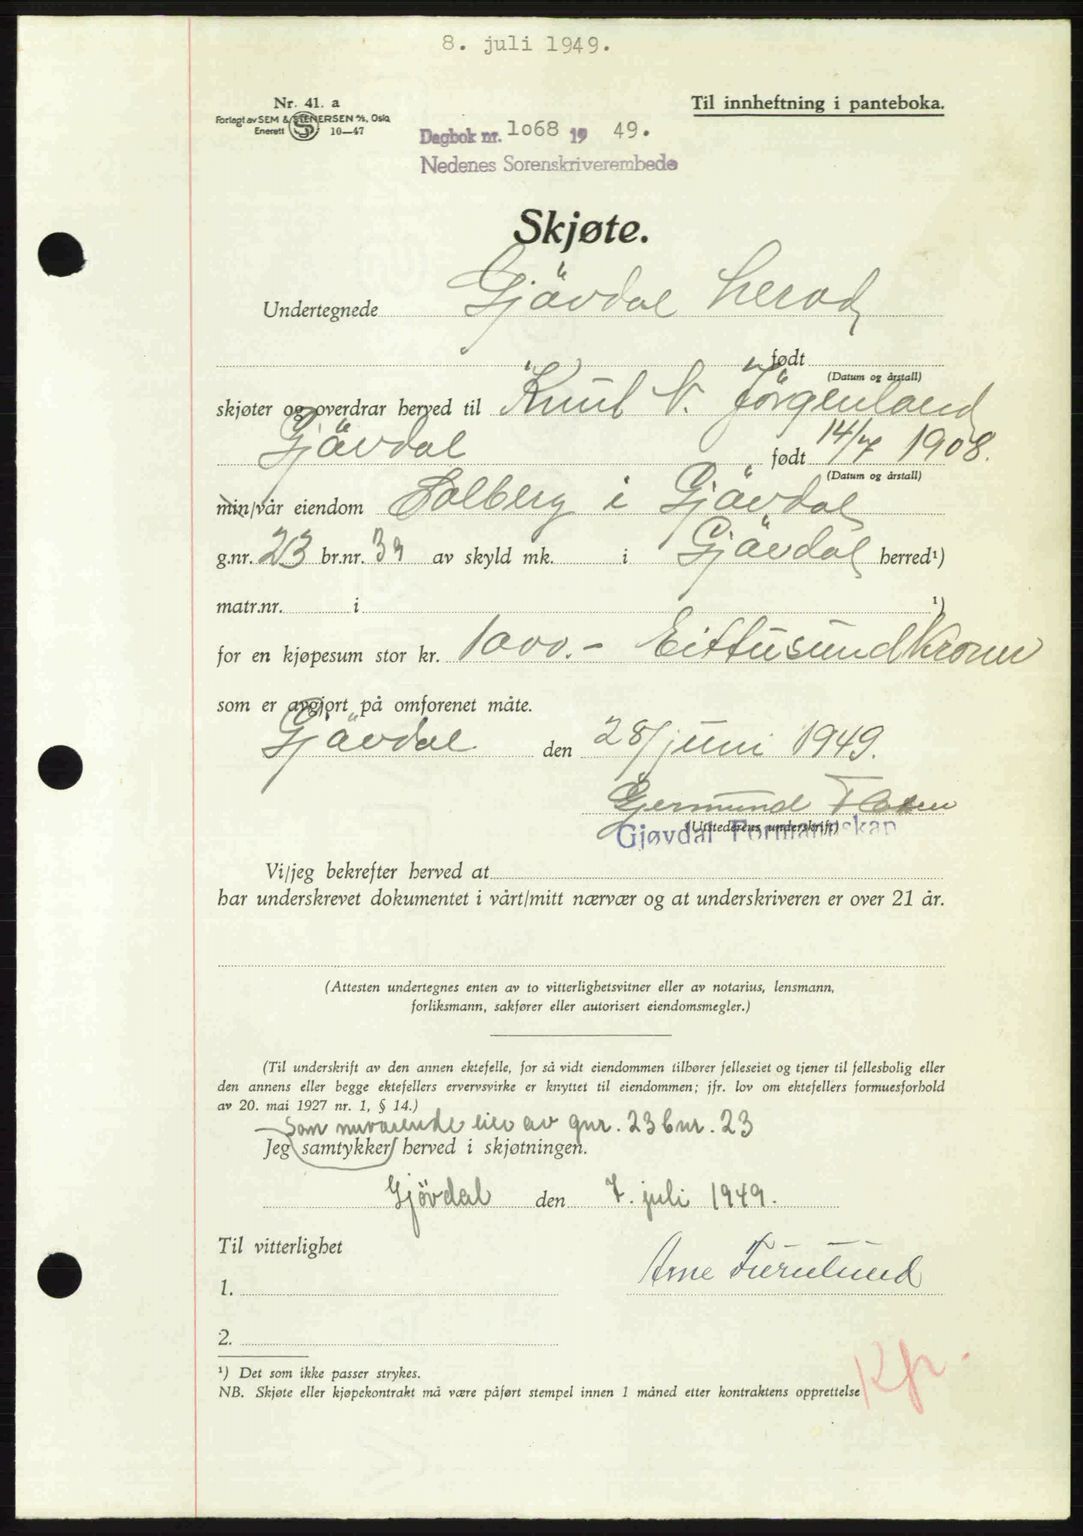 8. juli 1949.
Nr. 41. a
Forlagt av SEM & STENERSEN A/S, Oslo
Enerett 10—47
Til innheftning i panteboka.
Dagbok nr. 1068 19 49.
Nedenes Sorenskriverembede
Skjøte.
Undertegnede Gjövdal herad
født
(Datum og årstall)
skjøter og overdrar herved til Knut N. Jörgenland
Gjövdal født 14/7 1908.
(Datum og årstall)
min/vår eiendom Solberg i Gjövdal
g.nr. 23 br.nr. 39 av skyld mk. i Gjövdal herred¹)
matr.nr. i ¹)
for en kjøpesum stor kr. 1000.- Eittusund kroner
som er avgjort på omforenet måte.
Gjövdal den 28/juni 1949.
Gjermund Flaten
(Utstederens underskrift)
Gjøvdal Formannskap
Vi/jeg bekrefter herved at
har underskrevet dokumentet i vårt/mitt nærvær og at underskriveren er over 21 år.
(Attesten undertegnes enten av to vitterlighetsvitner eller av notarius, lensmann,
forliksmann, sakfører eller autorisert eiendomsmegler.)
(Til underskrift av den annen ektefelle, for så vidt eiendommen tilhører felleseiet og tjener til fellesbolig eller
den annens eller begge ektefellers ervervsvirke er knyttet til eiendommen; jfr. lov om ektefellers formuesforhold
av 20. mai 1927 nr. 1, § 14.)
som nuværende eier av gnr. 23 bnr. 23
Jeg samtykker herved i skjøtningen.
Gjövdal den 7. juli 1949.
Til vitterlighet
Arne
1.
2.
¹) Det som ikke passer strykes.
NB. Skjøte eller kjøpekontrakt må være påført stempel innen 1 måned etter kontraktens opprettelse
Kp.